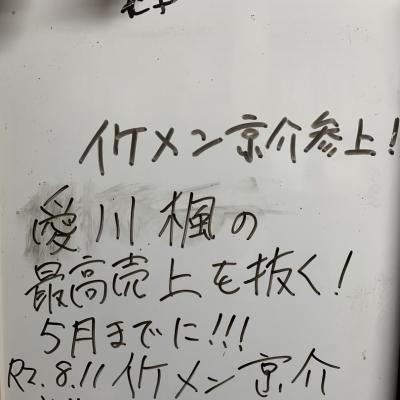 イケメン京介参上!
愛川楓の
最高売上を抜く!
5月までに!!!
R2.8.11イケメン京介